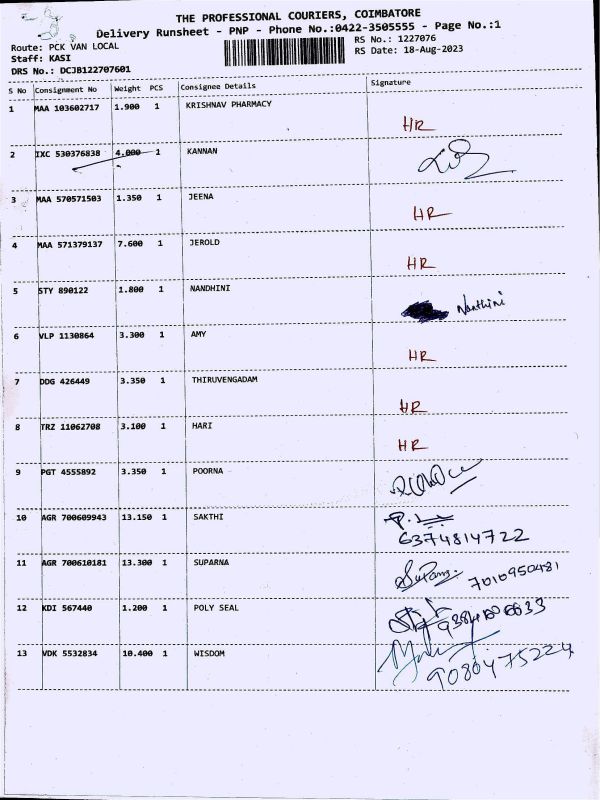 THE PROFESSIONAL COURIERS, COIMBATORE
Delivery Runsheet - PNP - Phone No.:0422-3505555 - Page No.:1
Route: PCK VAN LOCAL
RS No.: 1227076
Staff: KASI
RS Date: 18-Aug-2023
DRS No.: DCJB122707601
S No Consignment No Weight PCS Consignee Details Signature
1 MAA 103602717 1.900 1 KRISHNAV PHARMACY
HR
2 IXC 530376838 4.000 1 KANNAN
3 MAA 570571503 1.350 1 JEENA
HR
4 MAA 571379137 7.600 1 JEROLD
HR
5 STY 890122 1.800 1 NANDHINI
Nanthini
6 VLP 1130864 3.300 1 AMY
HR
7 DDG 426449 3.350 1 THIRUVENGADAM
HR
8 TRZ 11062708 3.100 1 HARI
HR
9 PGT 4555892 3.350 1 POORNA
10 AGR 700609943 13.150 1 SAKTHI
6374814722
11 AGR 700610181 13.300 1 SUPARNA
7010950481
12 KDI 567440 1.200 1 POLY SEAL
13 VDK 5532834 10.400 1 WISDOM
9080475224